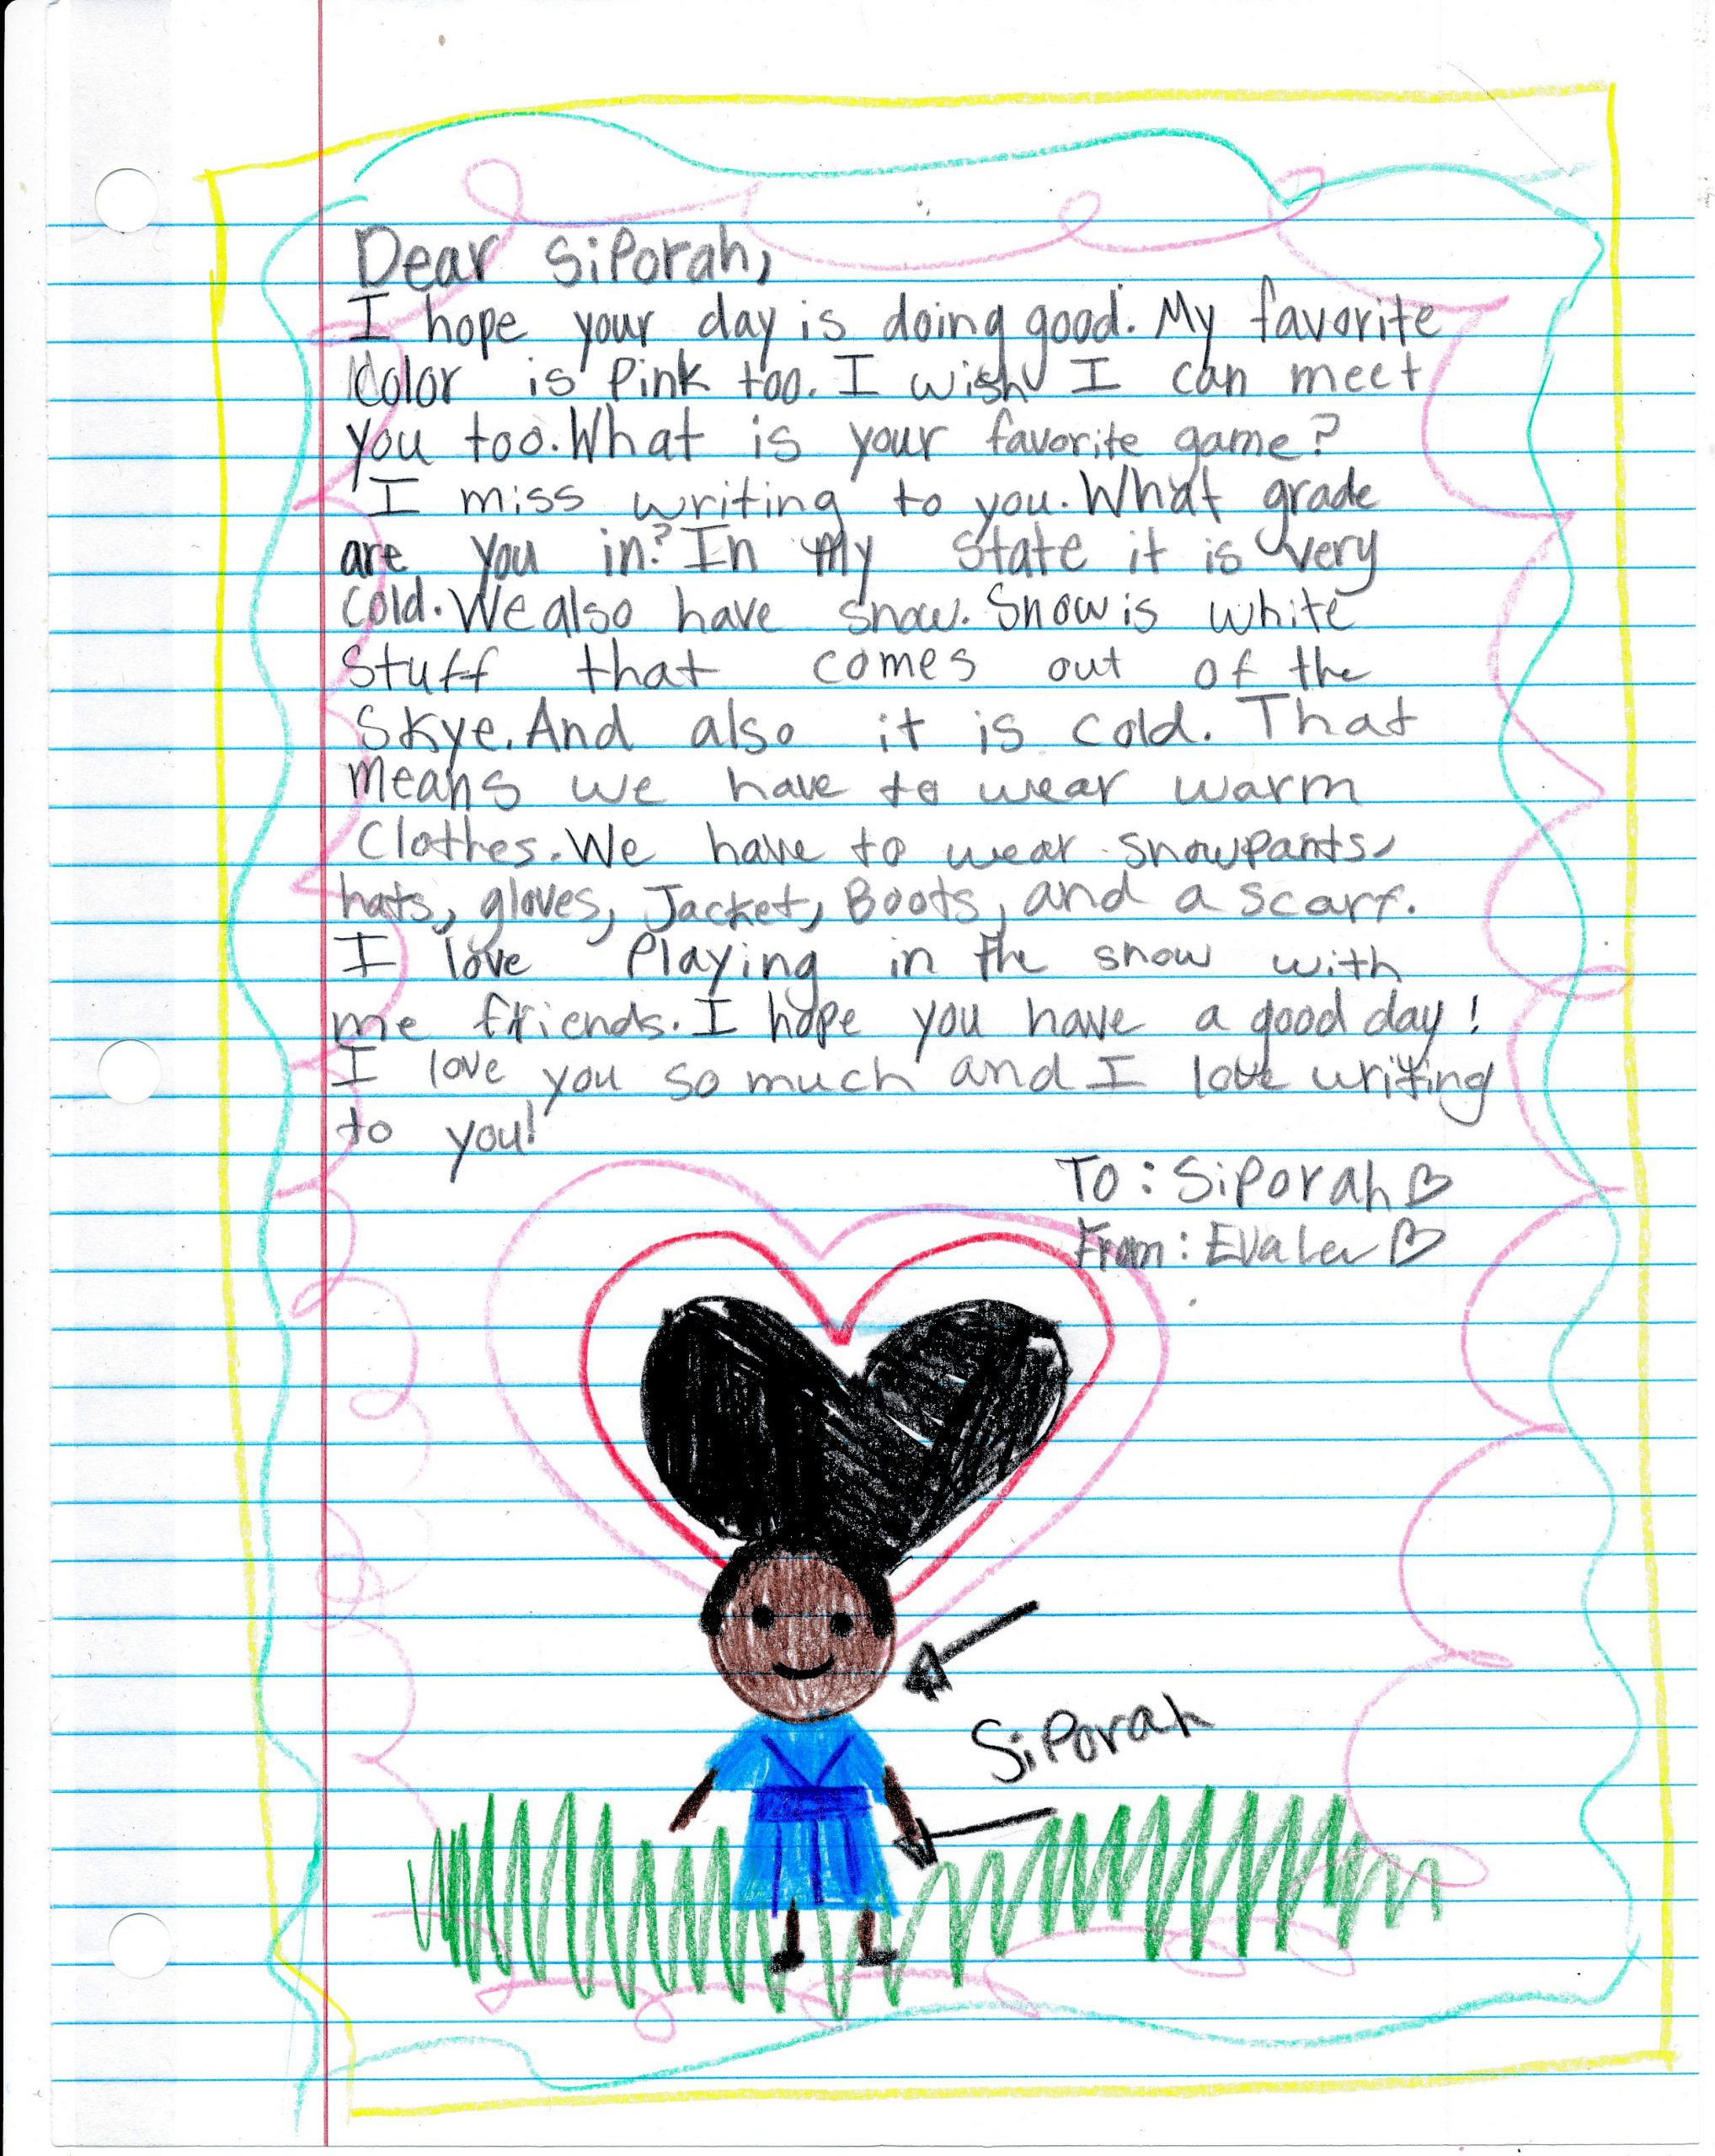 Dear Siporah,
I hope your day is doing good. My favorite
Color is Pink too. I wish I can meet
you too. What is your favorite game?
I miss writing to you. What grade
are you in? In my state it is very
cold. We also have snow. Snow is white
stuff that comes out of the
Skye. And also it is cold. That
means we have to wear warm
Clothes. We have to wear snowpants,
hats, gloves, Jacket, Boots, and a scarf.
I love Playing in the snow with
me friends. I hope you have a good day!
I love you so much and I love writing
to you!
To: Siporah
From: Evalev
Siporah